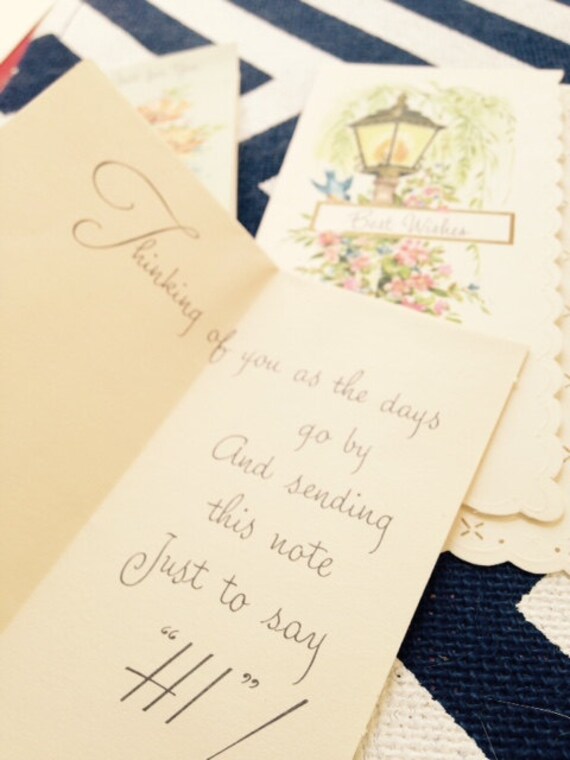 Thinking of you as the days
go by
And sending
this note
Just to say
“HI”!
Best Wishes